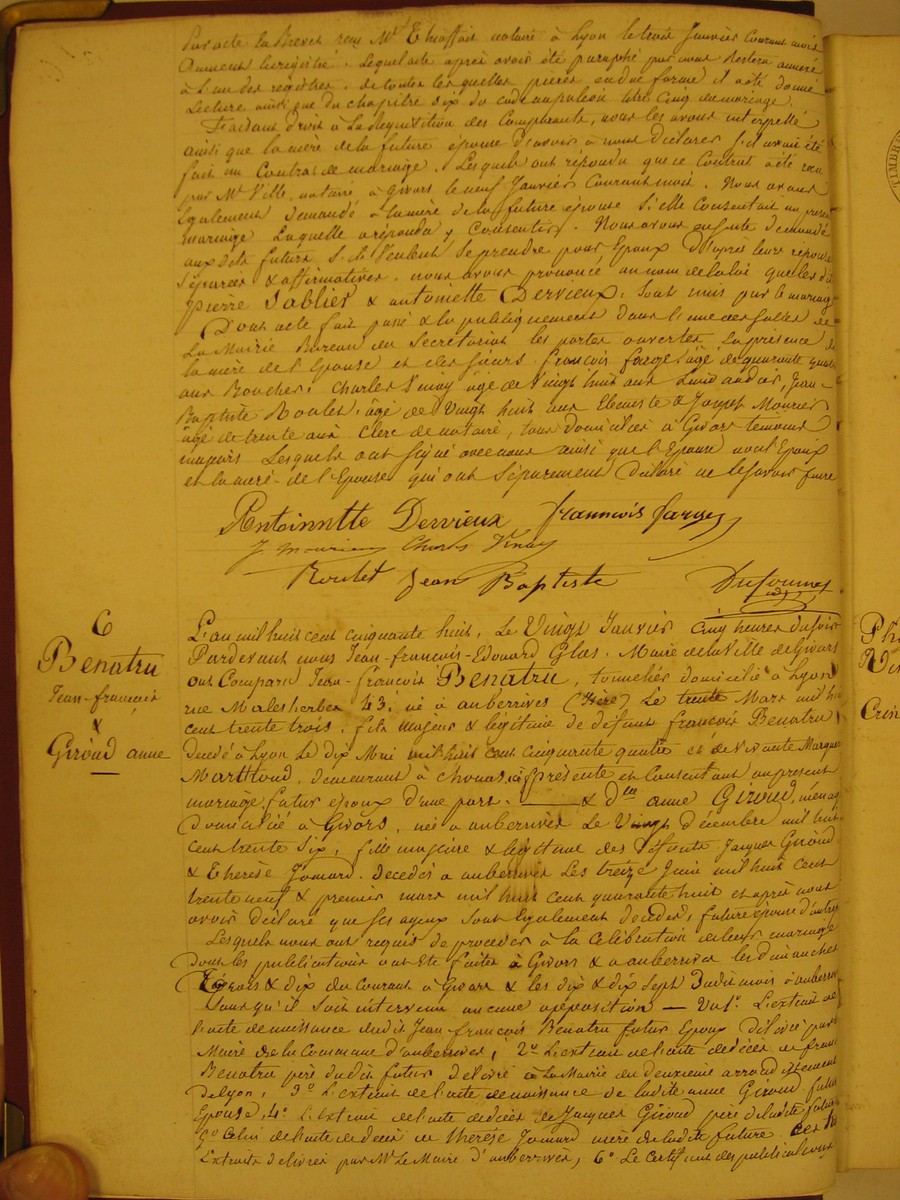 Par acte en Brevet reçu Me Thoffait notaire à Lyon le trois Janvier Courant mois
Dument Enregistré. Lequel acte après avoir été paraphé par nous restera annexé
à l'un des registres, de toutes lesquelles pièces en due forme il a été donné
Lecture ainsi que du chapitre six du code napoléon titre cinq du mariage.
Faisant droit à la Requisition des Comparants, nous les avons interpellé
ainsi que la mère de la future épouse d'avoir à nous déclarer s'il avait été
fait un Contrat de mariage. Lesquels ont répondu que ce Contrat a été reçu
par Me Ville, notaire à Givors le neuf Janvier Courant mois. Nous avons
Egalement demandé à la mère de la future épouse si elle Consentait au présent
mariage Laquelle a répondu y Consentir. Nous avons ensuite demandé
aux dits futurs s'ils veulent se prendre pour Epoux D'après leur réponse
séparées & affirmatives. nous avons prononcé au nom de la loi que les dits
Pierre Sablier & antoinette Dervieux, Sont unis par le mariage
Dont acte fait passé & lu publiquement dans l'une des salles de
La Mairie Bureau du Secretariat les portes ouvertes La présence de
la mère de l'Epouse et des sieurs. françois farge âgé de quarante quatre
ans Boucher, Charles Vinay âgé de vingt huit ans Limonadier, Jean-
Baptiste Roulet, âgé de Vingt huit ans Ebeniste & Joseph Mourier
âgé de trente ans Clerc de notaire, tous domiciliés à Givors témoins
majeurs Lesquels ont signé avec nous ainsi que l'Epouse non l'Epoux
et la mère de l'Epouse qui ont séparement déclaré ne le savoir faire
Antoinntte Dervieux françois farge
J Mourier Charles Vinay
Roulet Jean Baptiste Dufournel
6
Benatru
Jean-françois
&
Giroud anne
L'an mil huit cent cinquante huit, Le Vingt Janvier Cinq heures du soir
Pardevant nous Jean-françois-Edouard Glas. Maire de la Ville de Givors
ont Comparu Jean-françois Benatru, tonnelier domicilié à Lyon
rue Malesherbes 43, né à auberives (Isère) Le trente Mars mil huit
cent trente trois, fils majeur & légitime de defunt françois Benatru
décédé à Lyon Le dix Mai mil huit cent cinquante quatre et de vivante Marguerite
Marthoud, demeurant à chonas, ici présente et Consentant au présent
mariage. futur époux d'une part. & dlle anne Giroud, ménagère
domiciliée à Givors, née à auberives Le Vingt décembre mil huit
cent trente six, fille majeure & légitime des défunts Jacques Giroud
& Thérèse Jomard. Decedés à auberives Les treize Juin mil huit cent
trente neuf & premier mars mil huit cent quarante huit et après nous
avoir déclaré que ses ayeux sont Egalement décédés, future épouse d'autre
Lesquels nous ont requis de proceder à la Célébration de leur mariage
dont les publications ont été faites à Givors & à auberives les dimanches
trois & dix du courant à Givors & les dix & dix sept dudit mois à auberives
Sans qu'il soit intervenu aucune opposition — Vu 1º L'extrait de
l'acte de naissance dudit Jean-françois Benatru futur Epoux délivré par
Maire de la Commune d'auberives, 2º L'extrait de l'acte de décès de françois
Benatru père dudit futur délivré à la Mairie du deuxième arrondissement
de Lyon, 3º L'extrait de l'acte de naissance de ladite anne Giroud future
Epouse, 4º L'extrait de l'acte de décès de Jacques Giroud père de ladite future
5º Celui de l'acte de décès de Thérèse Jomard mère de ladite future
Extraits délivrés par Mr le Maire d'auberives, 6º Le certificat des publications
TIMBRE